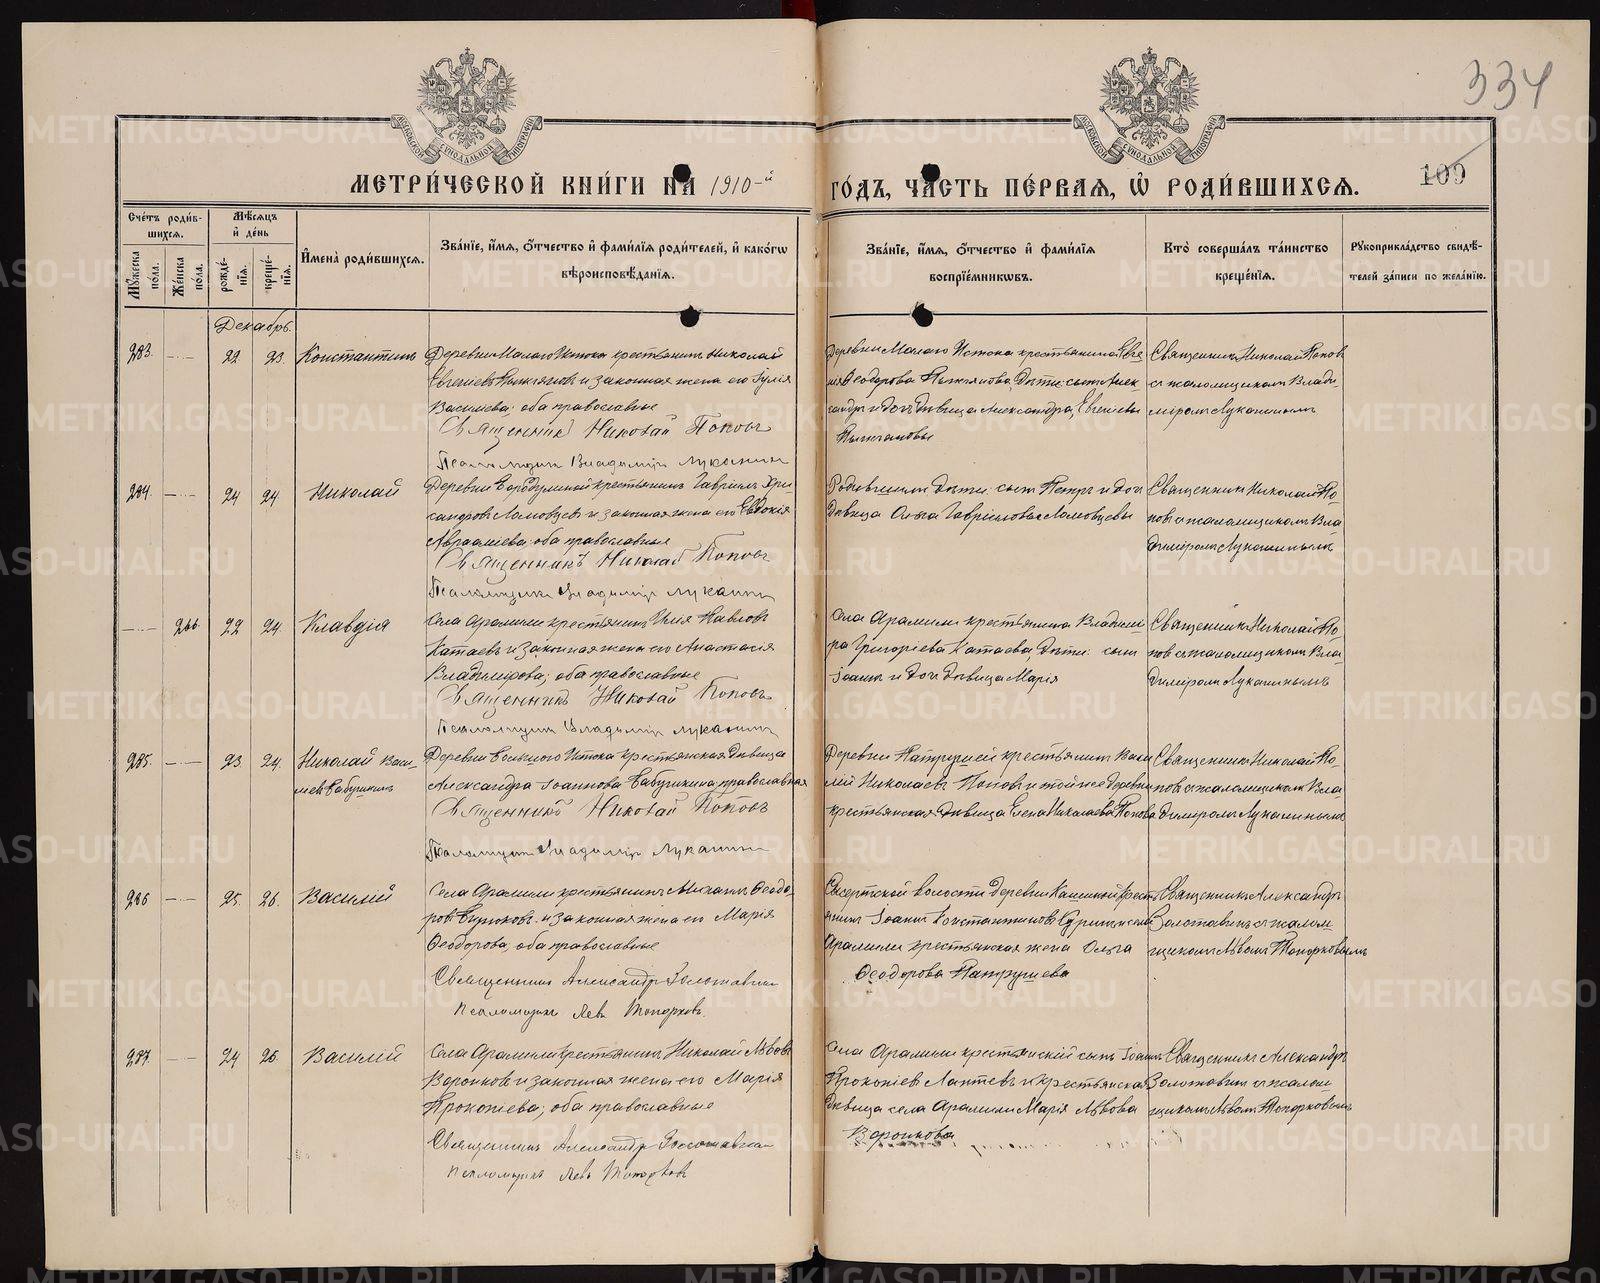 334
109
МЕТРИ́ЧЕСКОЙ КНИ́ГИ НА 1910-й ГО́ДЪ, ЧА́СТЬ ПЕ́РВАѦ, Ѡ҆ РОДИ́ВШИХСѦ.
Сче́тъ роди́в-
шихсѧ.
Мꙋ́жеска по́ла.
Же́нска по́ла.
Мѣ́сѧцъ
и҆ де́нь
рожде́-
нїѧ.
креще́-
нїѧ.
И҆мена̀ роди́вшихсѧ.
Зва́нїе, и҆́мѧ, ѻ҆́тчество и҆ фами́лїѧ роди́телей, и҆ како́гѡ
вѣроисповѣ́данїѧ.
Зва́нїе, и҆́мѧ, ѻ҆́тчество и҆ фами́лїѧ
воспрїе́мникѡвъ.
Кто̀ соверша́лъ та́инство
креще́нїѧ.
Рꙋкоприкла́дство свидѣ́-
телей за́писи по жела́нїю.
Декабрь.
283. 22. 23. Константинъ
Деревни Малаго Истока крестьянинъ Николай
и законная жена его Іулія
Васильева; оба православные
Священникъ Николай Поповъ
Псаломщикъ Владиміръ Луканинъ
Деревни Малаго Истока крестьянина Евге-
нія Ѳеодорова дѣти: сынъ Алек-
сандръ и дочь дѣвица Александра Евгеніевы
Священникъ Николай Поповъ
съ псаломщикомъ Влади-
міромъ Луканинымъ
284. 24 24. Николай
Деревни крестьянинъ Гавріилъ Хри-
сандровъ Ломовцевъ и законная жена его Евдокія
Аврааміева, оба православные
Священникъ Николай Поповъ
Псаломщикъ Владиміръ Луканинъ
Родившихъ дѣти: сынъ Петръ и дочь
дѣвица Ольга Гавріиловы Ломовцевы
Священникъ Николай По-
повъ съ псаломщикомъ Вла-
диміромъ Луканинымъ
266. 22 24. Клавдія
Села Арамили крестьянинъ Илія Павловъ
Катаевъ и законная жена его Анастасія
Владимірова; оба православные
Священникъ Николай Поповъ
Псаломщикъ Владиміръ Луканинъ
Села Арамили крестьянина Владимі-
ра Григоріева Катаева, дѣти: сынъ
Іоаннъ и дочь дѣвица Марія
Священникъ Николай По-
повъ съ псаломщикомъ Вла-
диміромъ Луканинымъ
285. 23 24. Николай Васи-
льевъ Бабушкинъ
Деревни Большого Истока крестьянская дѣвица
Александра Іоаннова Бабушкина, православная
Священникъ Николай Поповъ
Псаломщикъ Владиміръ Луканинъ
Деревни Патрушей крестьянинъ Васи-
лій Николаевъ Поповъ и той же деревни
крестьянская дѣвица Елена Николаева Попова
Священникъ Николай По-
повъ съ псаломщикомъ Вла-
диміромъ Луканинымъ
286 25. 26. Василій
Села Арамили крестьянинъ Михаилъ Ѳеодо-
ровъ и законная жена его Марія
Ѳеодорова, оба православные
Священникъ Александръ Золотавинъ
Псаломщикъ Левъ Топорковъ.
Сысертской волости деревни крест-
янинъ Іоаннъ Константиновъ и села
Арамили крестьянская жена Ольга
Ѳеодорова Патрушева
Священникъ Александръ
Золотавинъ съ псалом-
щикомъ Львомъ Топорковымъ
287. 24 26. Василій
Села Арамили крестьянинъ Николай Львовъ
Воронковъ и законная жена его Марія
Прокопіева; оба православные
Священникъ Александръ Золотавинъ
Псаломщикъ Левъ Топорковъ
Села Арамили крестьянскій сынъ Іоаннъ
Прокопіевъ Лаптевъ и крестьянская
дѣвица села Арамили Марія Львова
Воронкова
Священникъ Александръ
Золотавинъ съ псалом-
щикомъ Львомъ Топорковымъ
METRIKI.GASO-URAL.RU